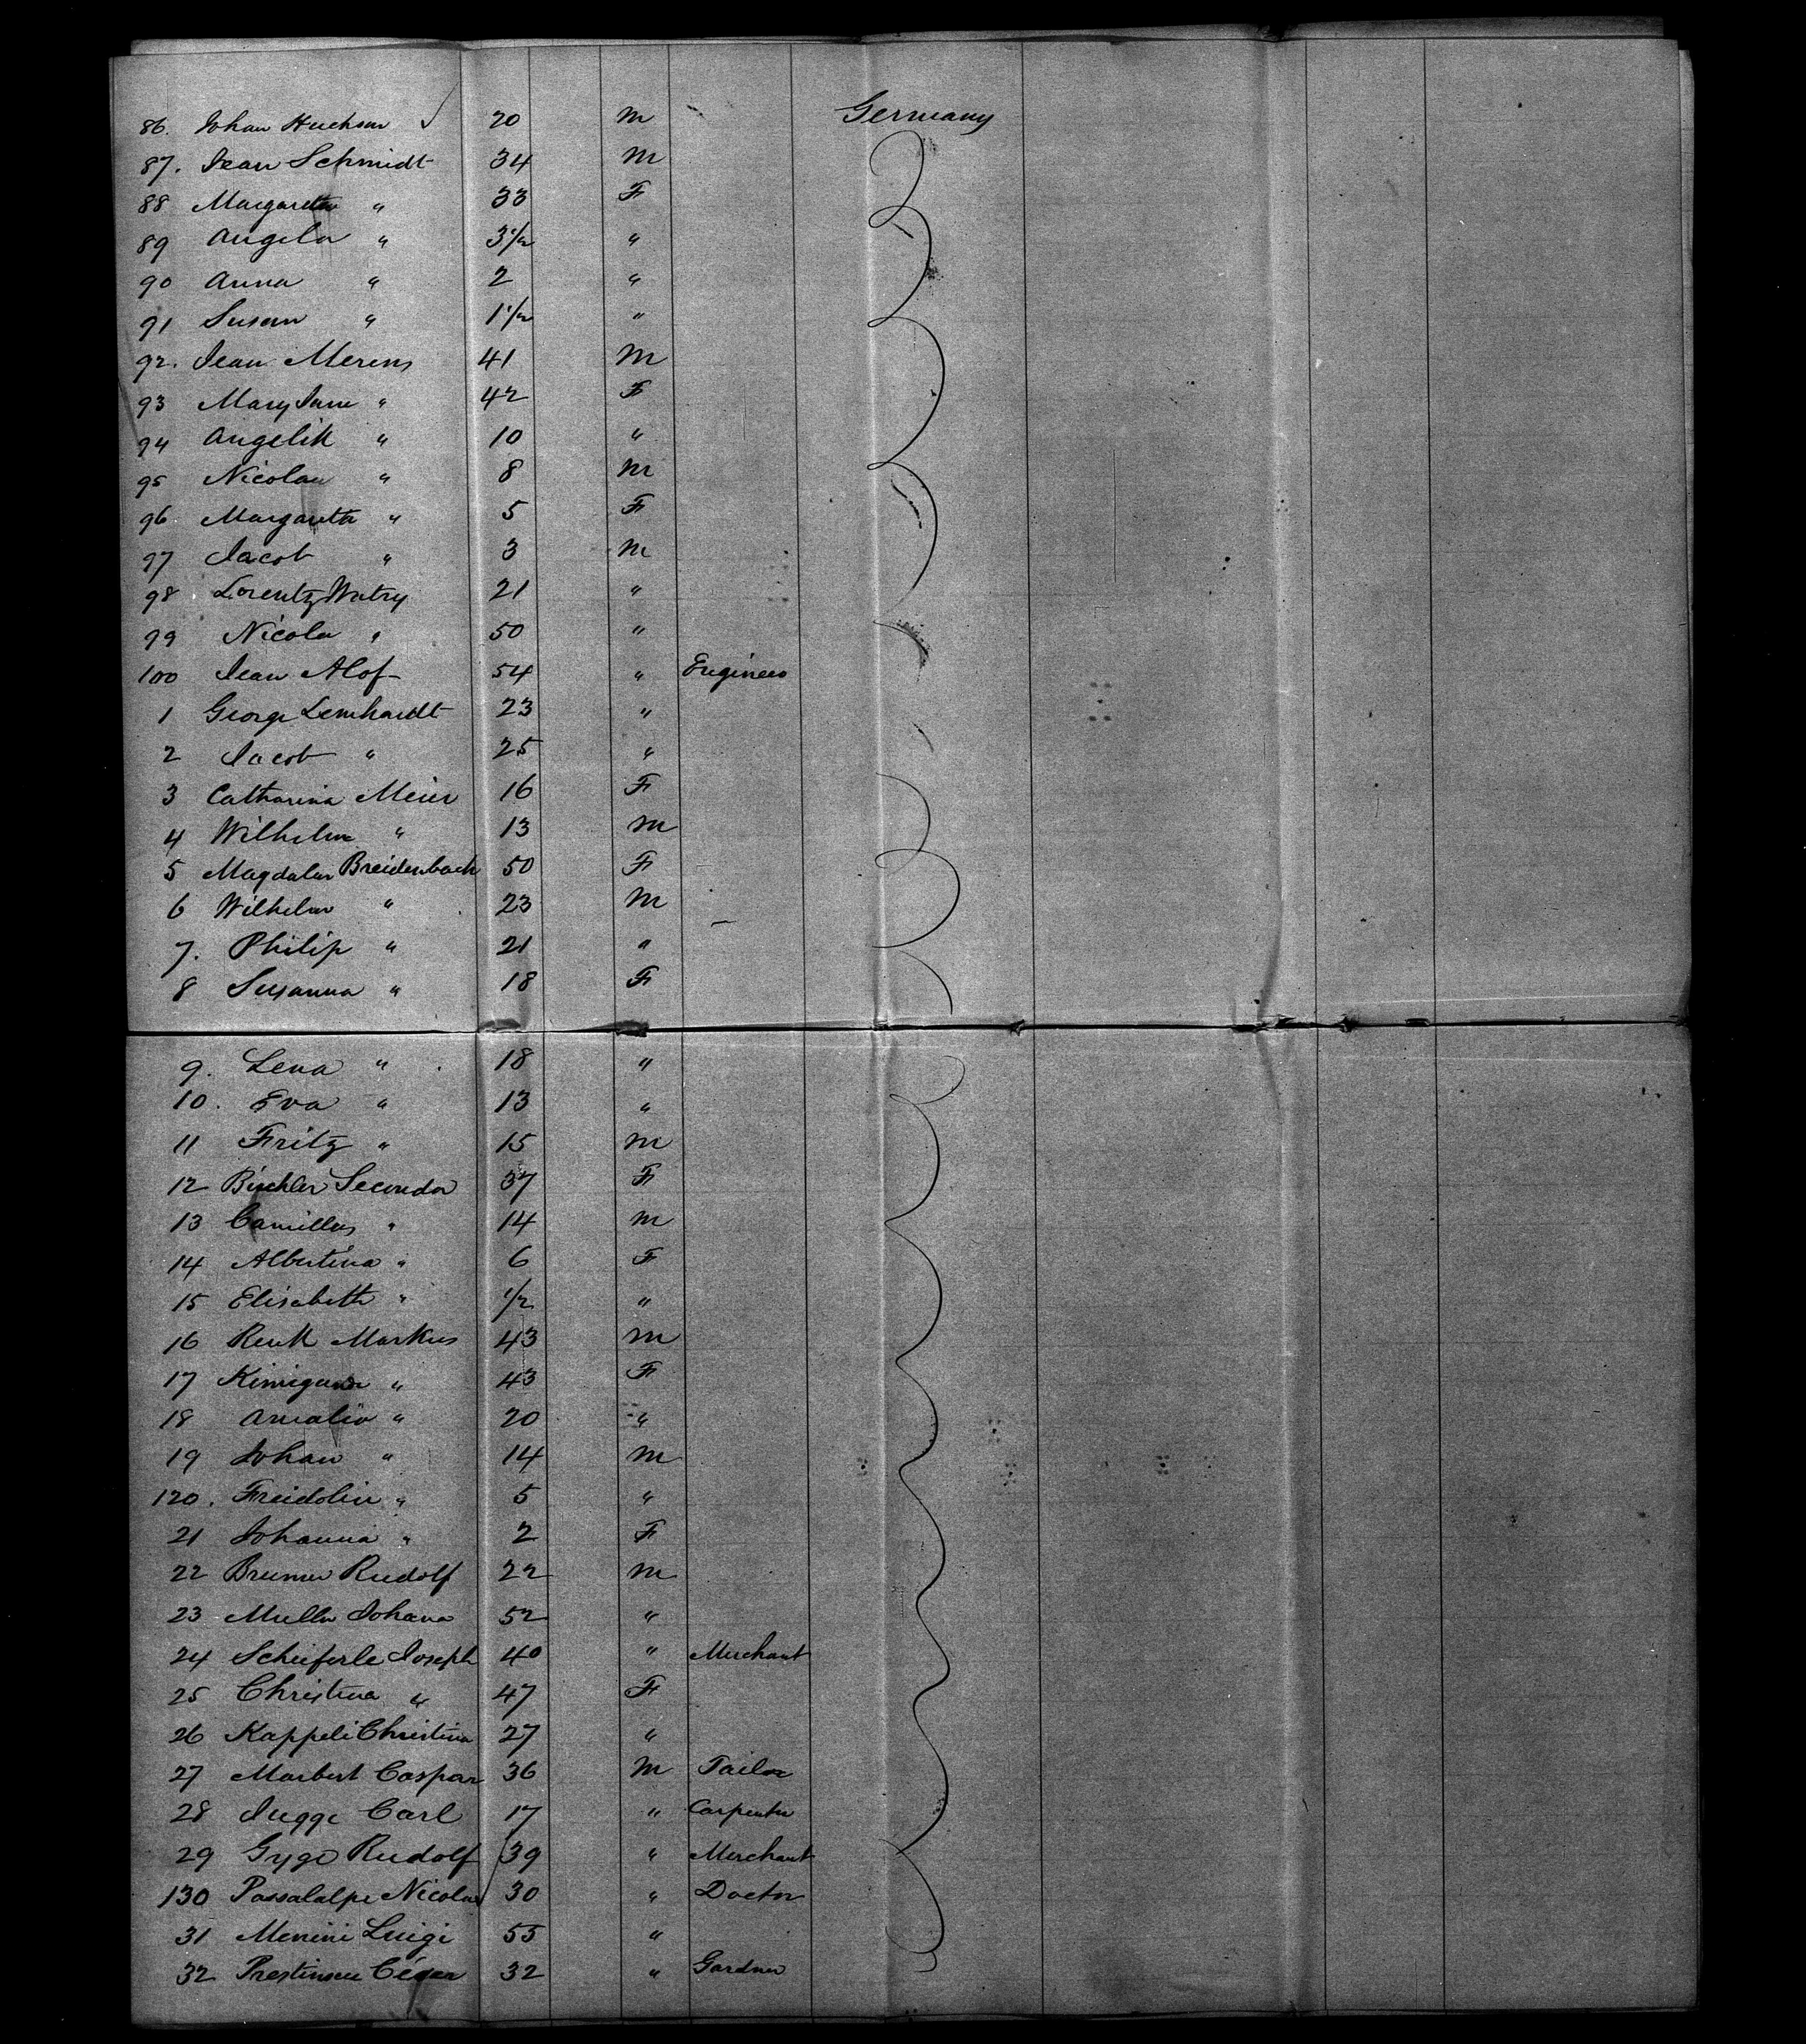 86. Johan Huckson 20 M Germany
87. Jean Schmidt 34 M
88 Margareta " 33 F
89 Angela " 3 1/2 "
90 Anna " 2 "
91 Susan " 1 1/2 "
92. Jean Merens 41 M
93 Mary Jane " 42 F
94 Angelik " 10 "
95 Nicolau " 8 M
96 Margareta " 5 F
97 Jacob " 3 M
98 Lorentz Watry 21 "
99 Nicola " 50 "
100 Jean Alof 54 " Engineer
1 George Lenhardt 23 "
2 Jacob " 25 "
3 Catharina Meier 16 F
4 Wilhelm " 13 M
5 Magdalen Breidenbach 50 F
6 Wilhelm " 23 M
7. Philip " 21 "
8 Susanna " 18 F
9. Lena " 18 "
10. Eva " 13 "
11 Fritz " 15 M
12 Bischler Seconda 37 F
13 Camillus " 14 M
14 Albertina " 6 F
15 Elisabeth " 1/2 "
16 Renk Markus 43 M
17 " 43 F
18 Amalia " 20 "
19 Johan " 14 M
120. Freidolin " 5 "
21 Johanna " 2 F
22 Brunner Rudolf 22 M
23 Muller Johana 52 "
24 Scheiferle Joseph 40 " Merchant
25 Christina " 47 F
26 Kappeli Christina 27 "
27 Marbert Caspar 36 M Tailor
28 Juggi Carl 17 " Carpenter
29 Gygo Rudolf 39 " Merchant
130 Passalalpe Nicolas 30 " Doctor
31 Menini Luigi 55 "
32 Céser 32 " Gardner